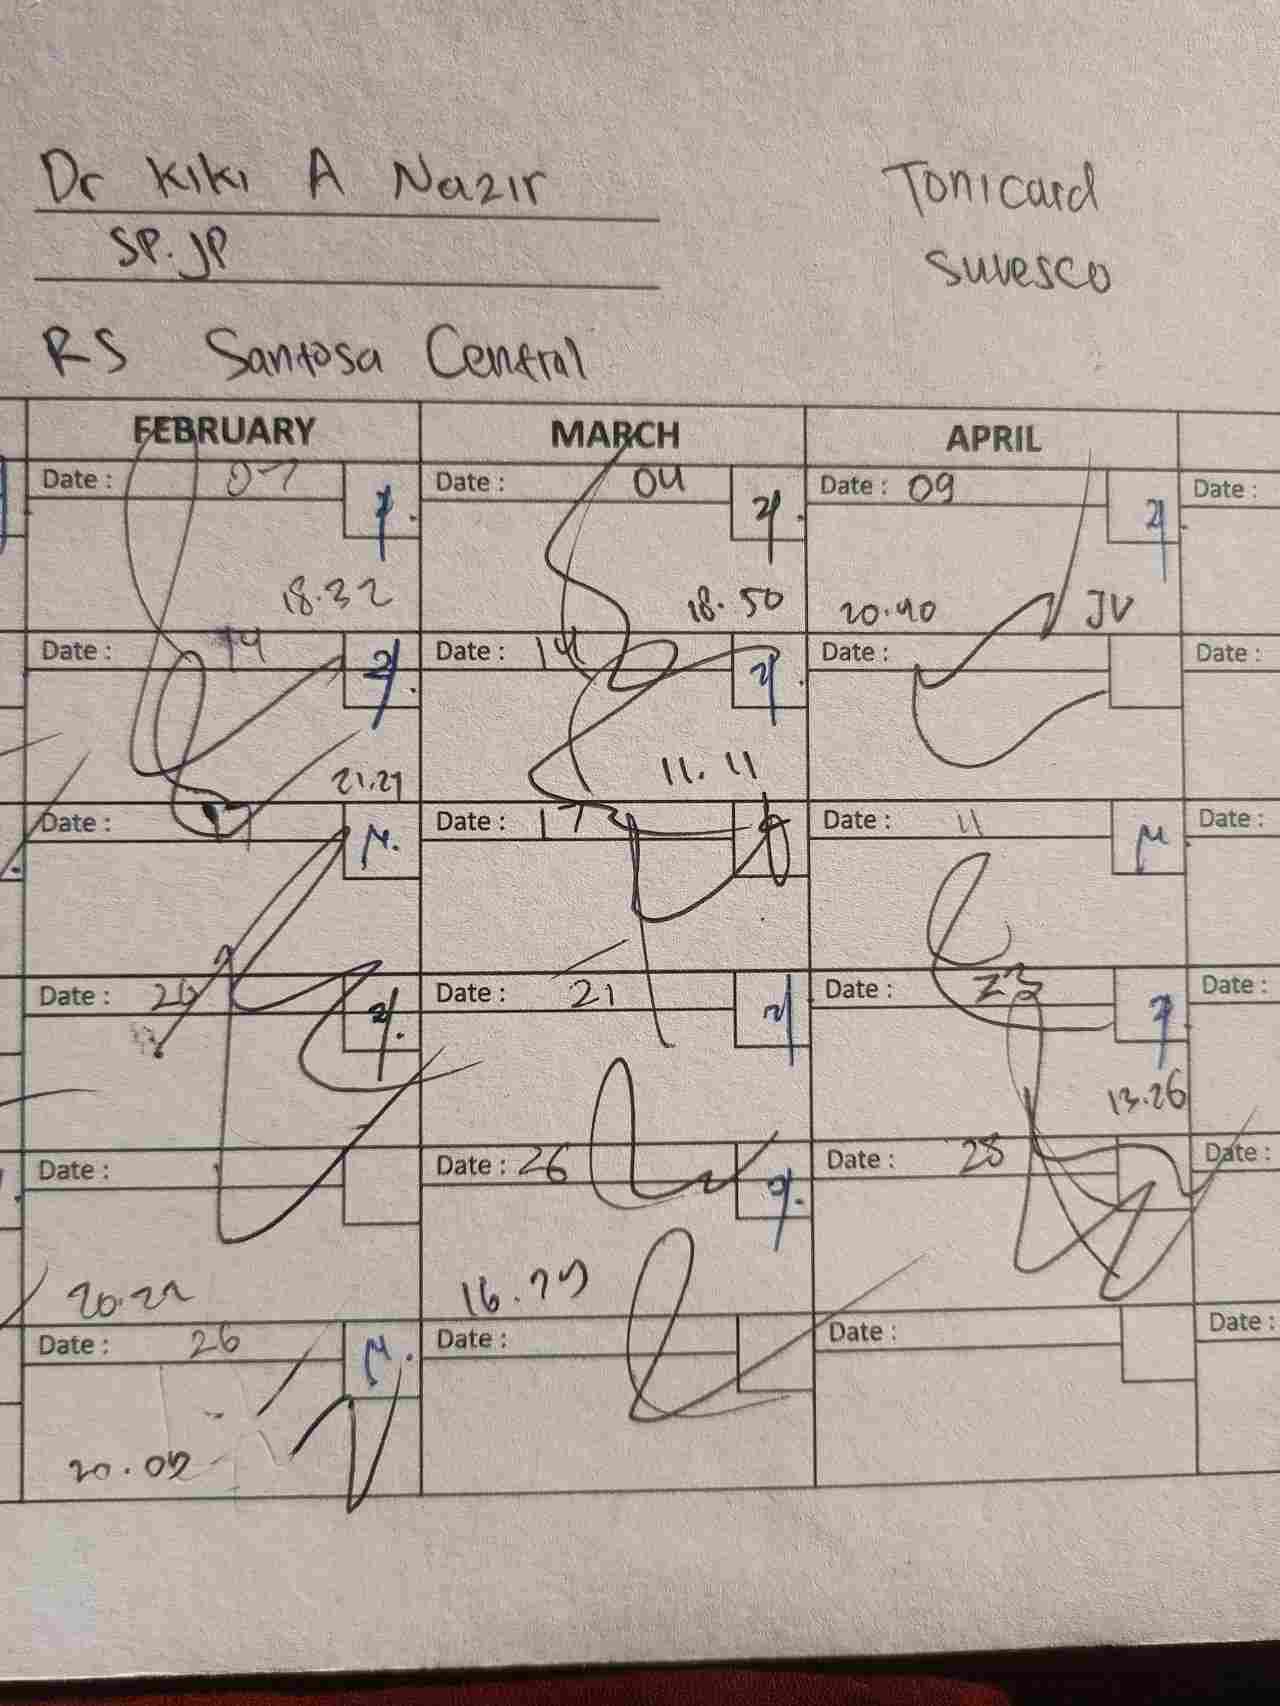 Dr Kiki A Nazir
Tonicard
SP.JP
Suvesco
RS Santosa Central
FEBRUARY MARCH APRIL
Date : 07 Date : 04 Date : 09 Date :
18.32 18.50 20.40 JV
Date : 14 Date : 14 Date : Date :
21.29 11.11
Date : Date : 17 Date : 11 Date :
Date : 20 Date : 21 Date : 23 Date :
13.26
Date : Date : 26 Date : 28 Date :
20.22 16.29
Date : 26 Date : Date : Date :
20.05